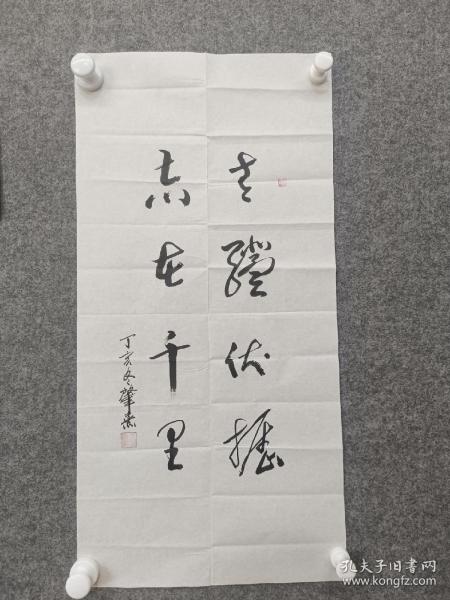 老驥伏櫪
志在千里
丁亥冬肇
孔夫子旧书网
www.kongfz.com